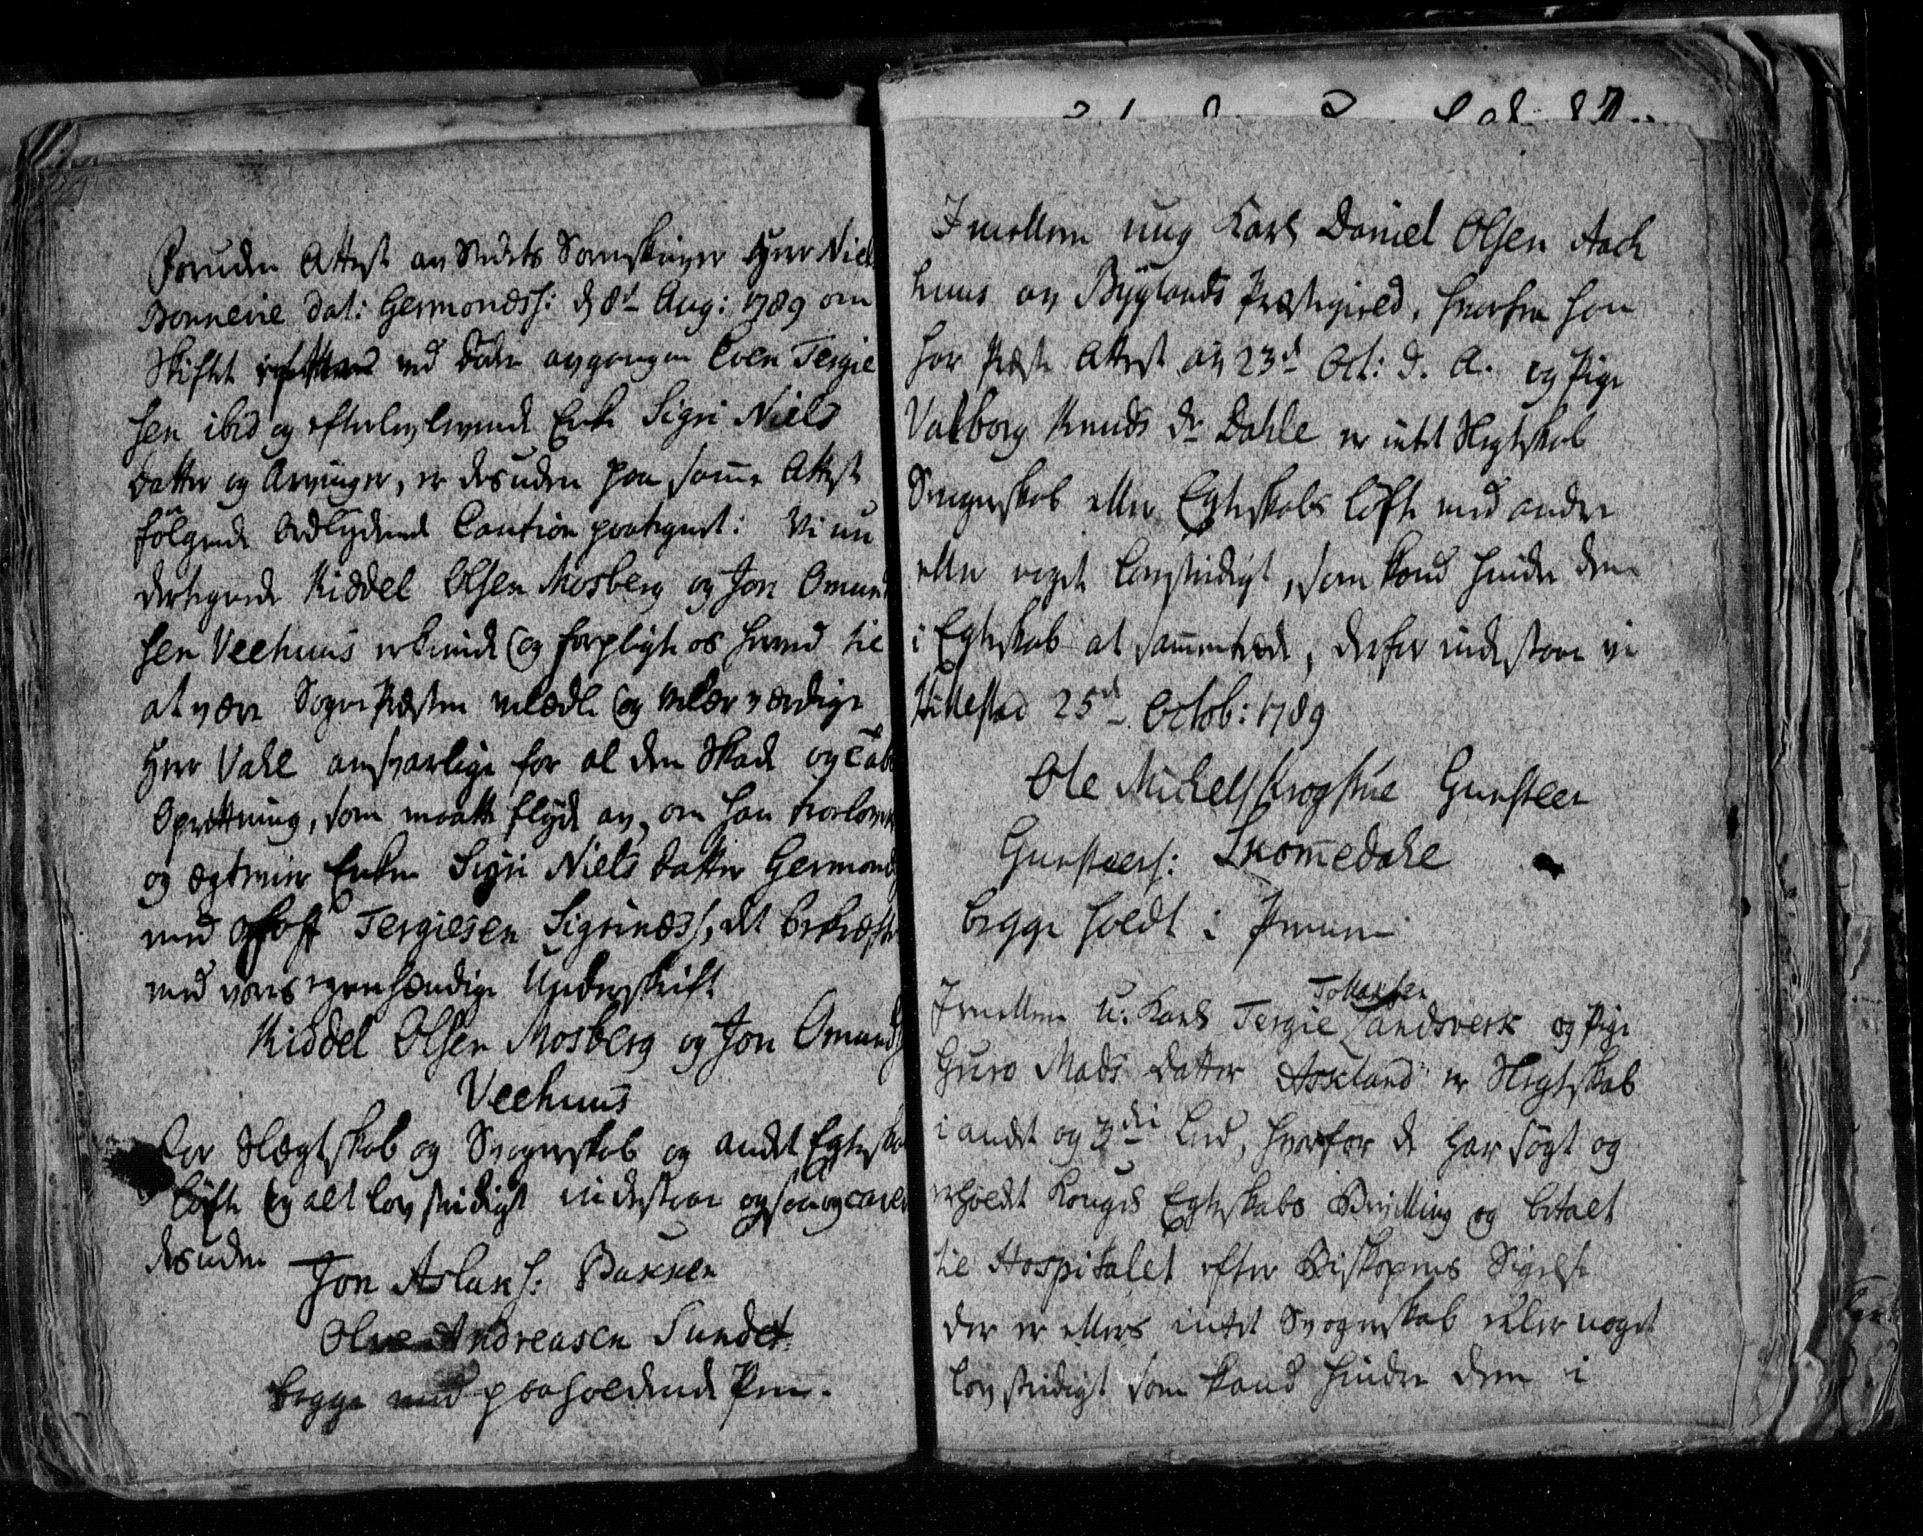 Foruden Attest av Stedets Sorenskriver Herr Niels
Bonnevie dat: Germonds: d 8d Aug: 1789 om
Skiftet ved døde avgangen Even Tergie
sen ibid og efterlevlevende Enke Sigri Niels
datter og Arvinger, er desuden paa samme Attest
følgende Ordlydende Caution paategnet: Vi un
dertegnede Kiddel Olsen Mosberg og Jon Omund
sen Veehuus erkiende og forpligte os herved til
at være Sogne Præsten velædle og velærværdige
Herr Vahl ansvarlige for al den Skade og Tabs
Oprettning, som maatte flyde av, om han trolover
og ægtevier Enken Sigri Niels datter Germonds
med Tergiesen Sigrinæss, det bekræfte
med vores egenhændige Underskrift
Kiddel Olsen Mosberg og Jon Omunds
Veehuus
For Slægtskab og Svogerskab og andet Egteskab
løfte og alt lovstridigt indestaar ogsaa og caver
desuden
Jon Aslaks: Bakken
Olve Andreasen Sundet
begge med paaholdende Pen.
Imellem ung Karl Daniel Olsen Aack
huus av Byglands Præstegield, hvorfra han
har Præste Attest av 23d Oct: d. A. og Pige
Valborg Knuds dr Dahle er intet Slegtskab
Svogerskab eller Egteskabs løfte med andre
eller noget lovstridigt, som kand hindre dem
i Egteskab at sammentræde, derfor indestaar vi
Hillestad 25d Octob: 1789
Ole Michels Kroghue Gunsteen
Gunsteens: Skomedahl
begge holdt i Pennen
Imellem U: Karl Tergie Tollaksen Landsverk og Pige
Guro Mads datter Askland er Slegtskab
i andet og 3die Led, hvorfor de har søgt og
erholdt Konges Egteskabs Bevilling og betalt
til Hospitalet efter Biskopens Sigelse
der er ellers intet Svogerskab eller noget
lovstridigt som kand hindre dem i